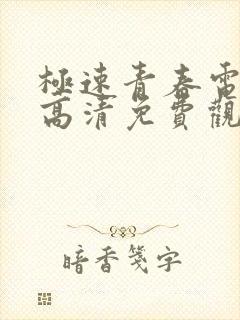 極速青春電
高清免費觀
暗香箋字